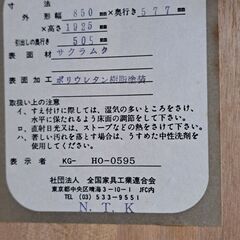 寸法
外形 幅850mm×奥行き577mm
×高さ1925mm
引出しの奥行き 505mm
表面材 サクラムク
表面加工 ポリウレタン樹脂塗装
取扱い上の注意
イ、すえ付けに際しては、湿気の多いところをさけ、
水平に保たれるよう床面の調節をして下さい。
ロ、直射日光又は、ストーブなどの熱をさけて下さい。
ハ、著しい汚れを落とす場合は、うすめた中性洗剤を
使用して下さい。
表示者 KG- HO-0595
社団法人 全国家具工業連合会
東京都中央区晴海3-10-1 JFC内
TEL (03) 533-9551
N.T.K